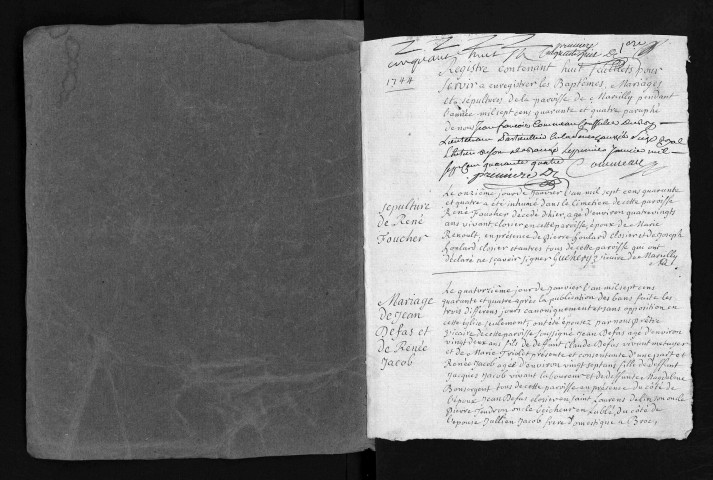 cinquante huit
premiere
1744
Registre contenant huit feuillets pour
servir a enregistrer les Baptêmes, Mariages
et sepultures de la paroisse de Marilly pendant
l'année mil sept cens quarante et quatre paraphé
de nous Jean françois
Lieutenant
mil
sept cent quarante quatre
premiere
sepulture
de René
Foucher
Le onzième jour de Janvier l'an mil sept cens quarante
et quatre a été inhumé dans le Cimetiere de cette paroisse
René Foucher décédé d'hier, agé d'environ quatre vingts
ans vivant closier en cette paroisse, époux de Marie
Renoult, en présence de Pierre Goulard closier et de Joseph
Goulard closier et autres tous de cette paroisse qui ont
déclaré ne sçavoir signer vicaire de Marilly
Mariage
de Jean
Défas et
de Renée
Jacob
Le quatorzième jour de Janvier l'an mil sept cens
quarante et quatre après la publication des bans faite les
trois differens jours canoniquement et sans opposition en
cette église seulement, ont été épousez par nous prêtre
vicaire de cette paroisse soussigné Jean Défas agé d'environ
vingt deux ans fils de deffunt Claude Défas vivant metayer
et de Marie présente et consentente d'une part et
Renée Jacob agée d'environ vingt sept ans fille de deffunt
Jacques Jacob vivant laboureur et de deffunte Magdeleine
tous de cette paroisse en présence du côté de
l'époux Jean Défas closier en saint Laurens de Lin son oncle
Pierre oncle du côté de
l'épouse Jullien Jacob frere domestique a Broc,